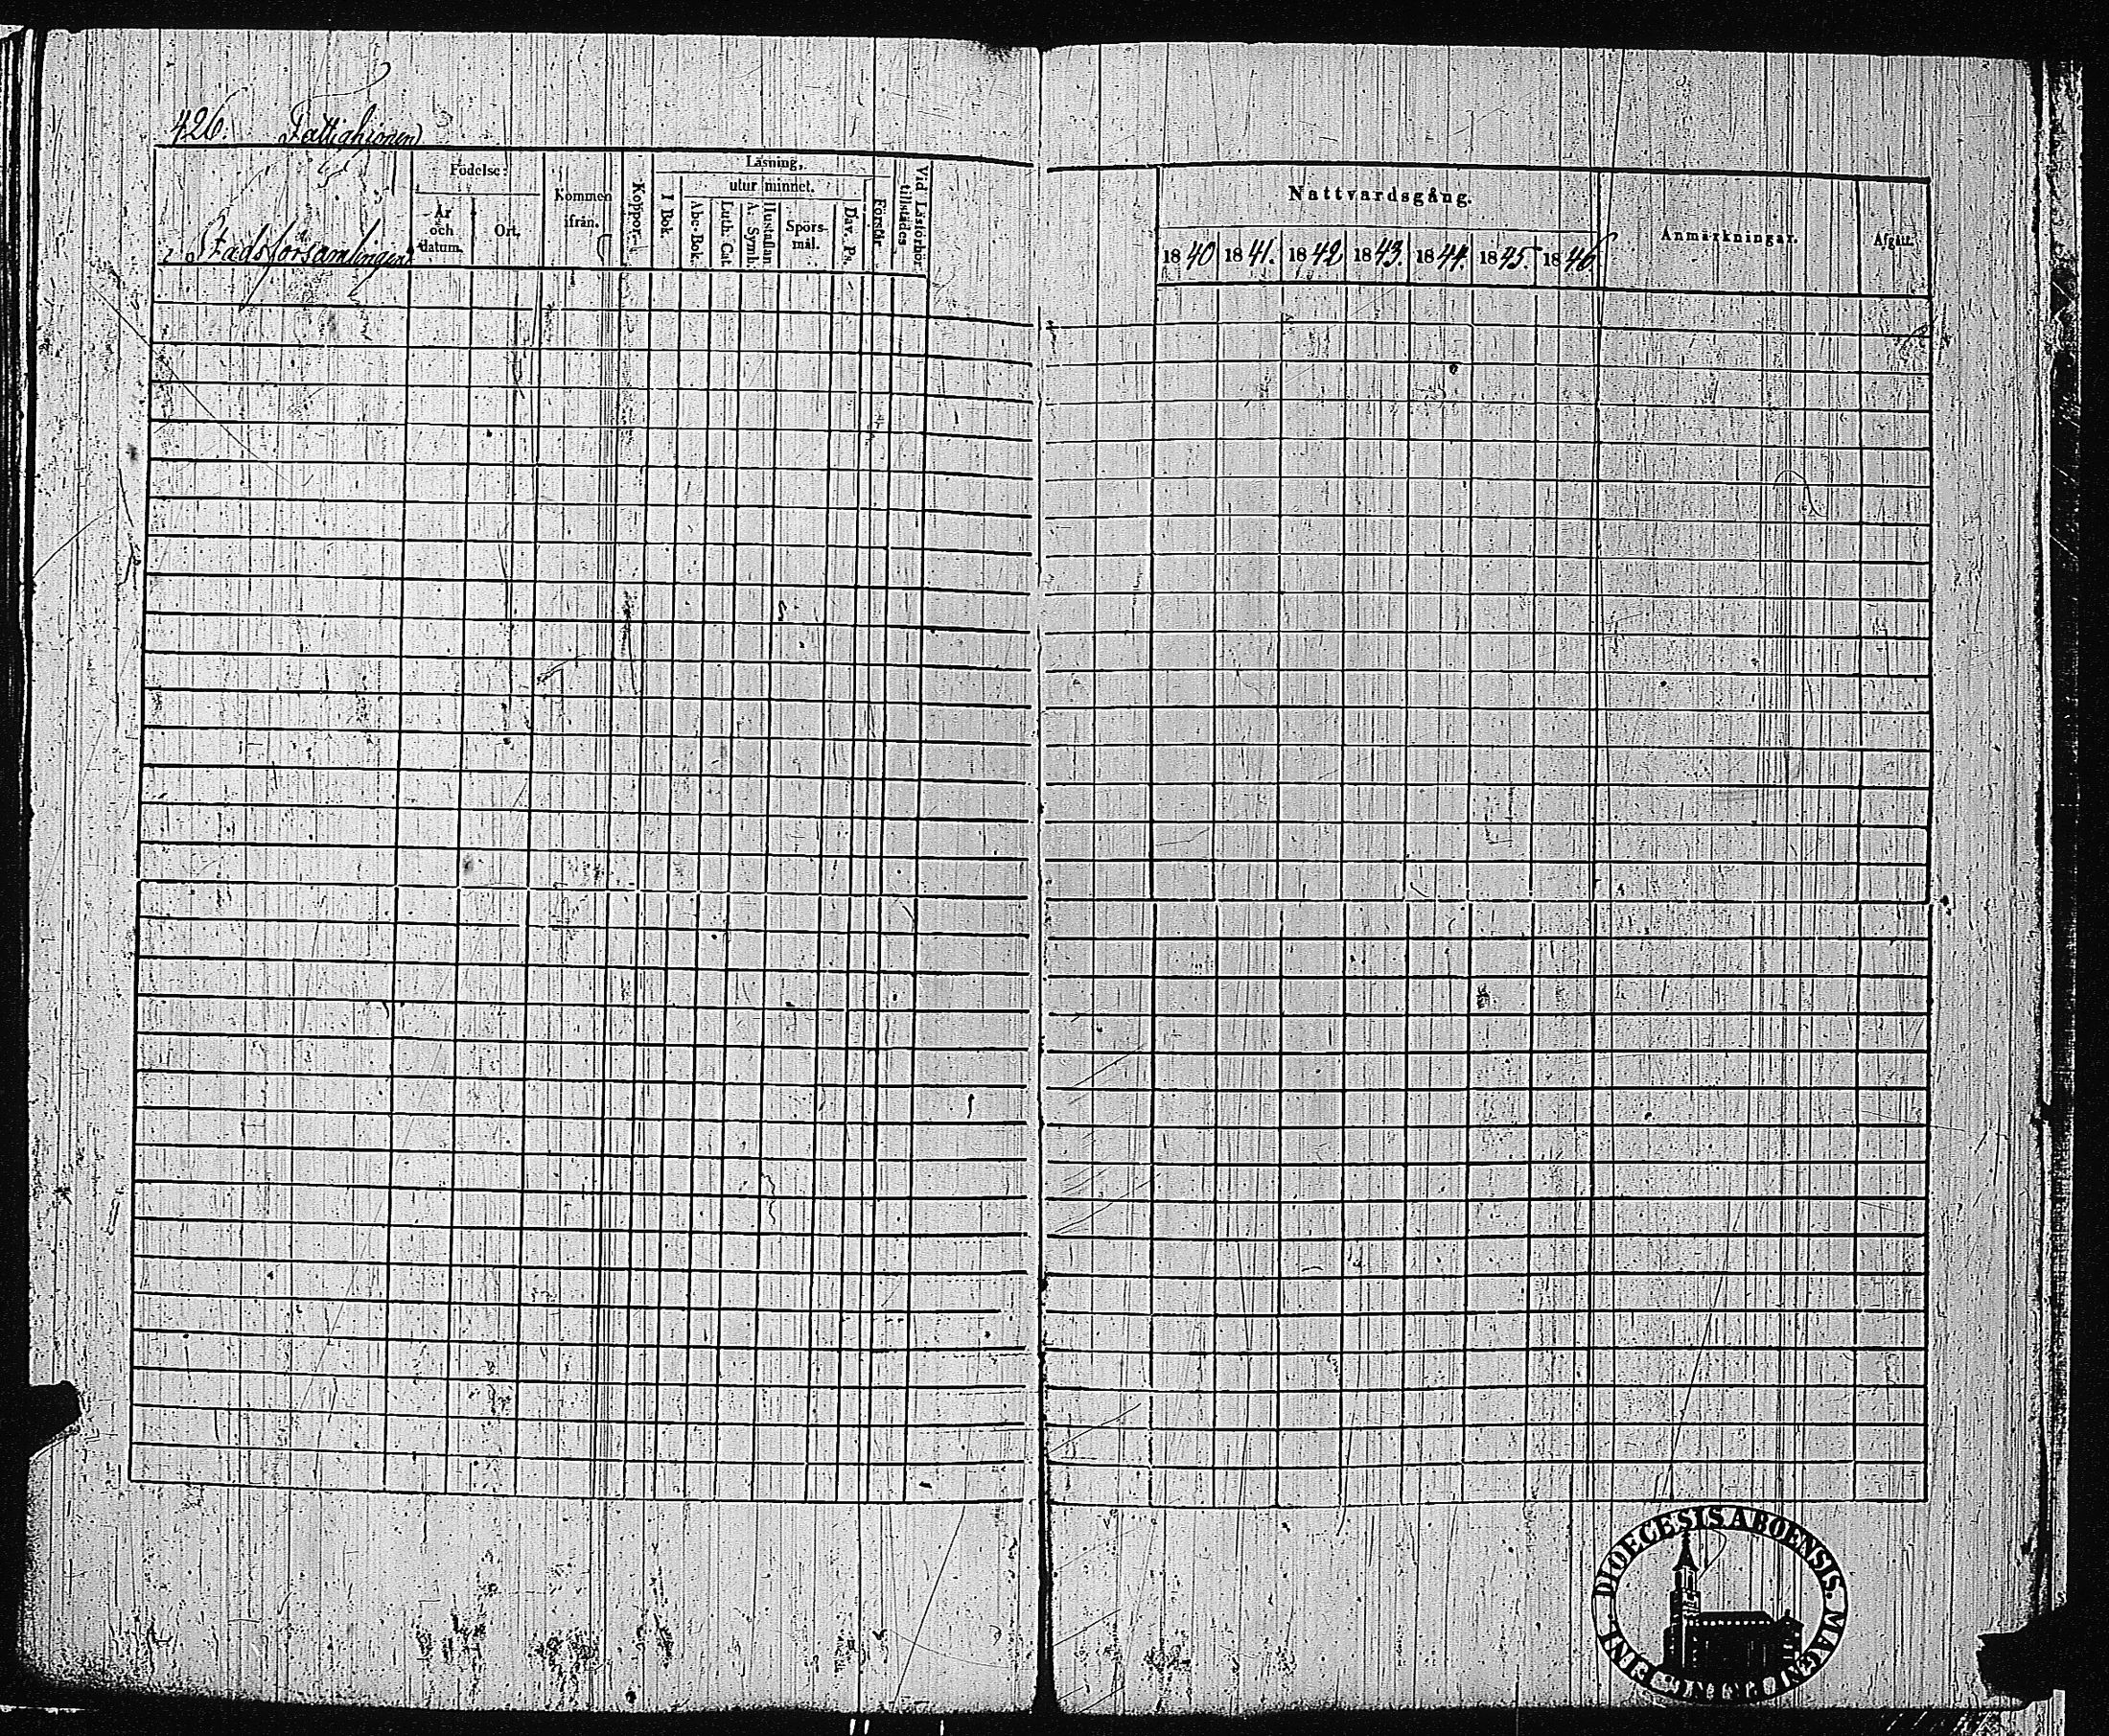 426. Fattighionen
i Stadsförsamlingen
Födelse:
År och datum.
Ort.
Kommen ifrån.
Koppor.
Läsning,
I Bok.
utur minnet.
Abc-Bok.
Luth. Cat.
A. Symb.
Hustaflan
Spörsmål.
Dav. Ps.
Förstår
Vid Läsförhör tillstädes
Nattvardsgång.
1840 1841. 1842 1843. 1844. 1845. 1846
Anmärkningar.
Afgått.
DIOECESIS ABOENSIS. MAGNI PRINC. FINL.